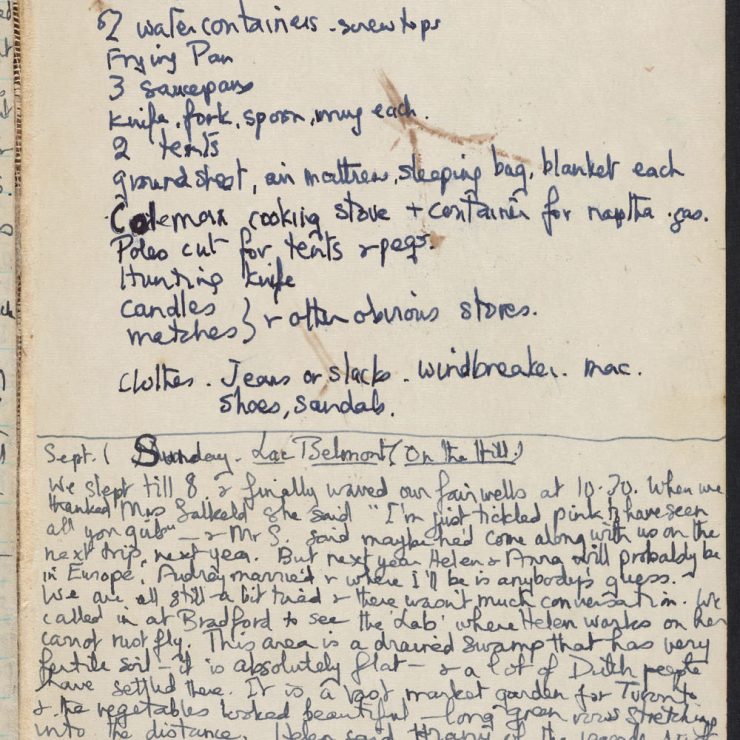 2 water containers - screw tops
Frying Pan
3 saucepans
Knife, fork, spoon, mug each.
2 tents
groundsheet, air mattress, sleeping bag, blanket each
Coleman cooking stove + container for naptha gas.
Poles cut for tents & pegs.
Hunting knife
candles
matches } & other obvious stores.
Clothes. Jeans or slacks. windbreaker. mac.
Shoes, sandals.
Sept. 1 Sunday. Lac Belmont (On the Hill)
We slept till 8 & finally waved our fairwells at 10.30. When we
thanked Mrs Salkeld she said "I'm just tickled pink to have seen
all you guls" - & Mr S. said maybe he'd come along with us on the
next trip, next year. But next year Helen & Anna will probably be
in Europe, Audrey married & where I'll be is anybody's guess. -
We are all still a bit tired & there wasn't much conversation. We
called in at Bradford to see the 'Lab' where Helen works on her
carrot rust fly. This area is a drained swamp that has very
fertile soil - it is absolutely flat - & a lot of Dutch people
have settled there. It is a vast market garden for Toronto
& the vegetables looked beautiful - long green rows stretching
into the distance. Helen said many of the